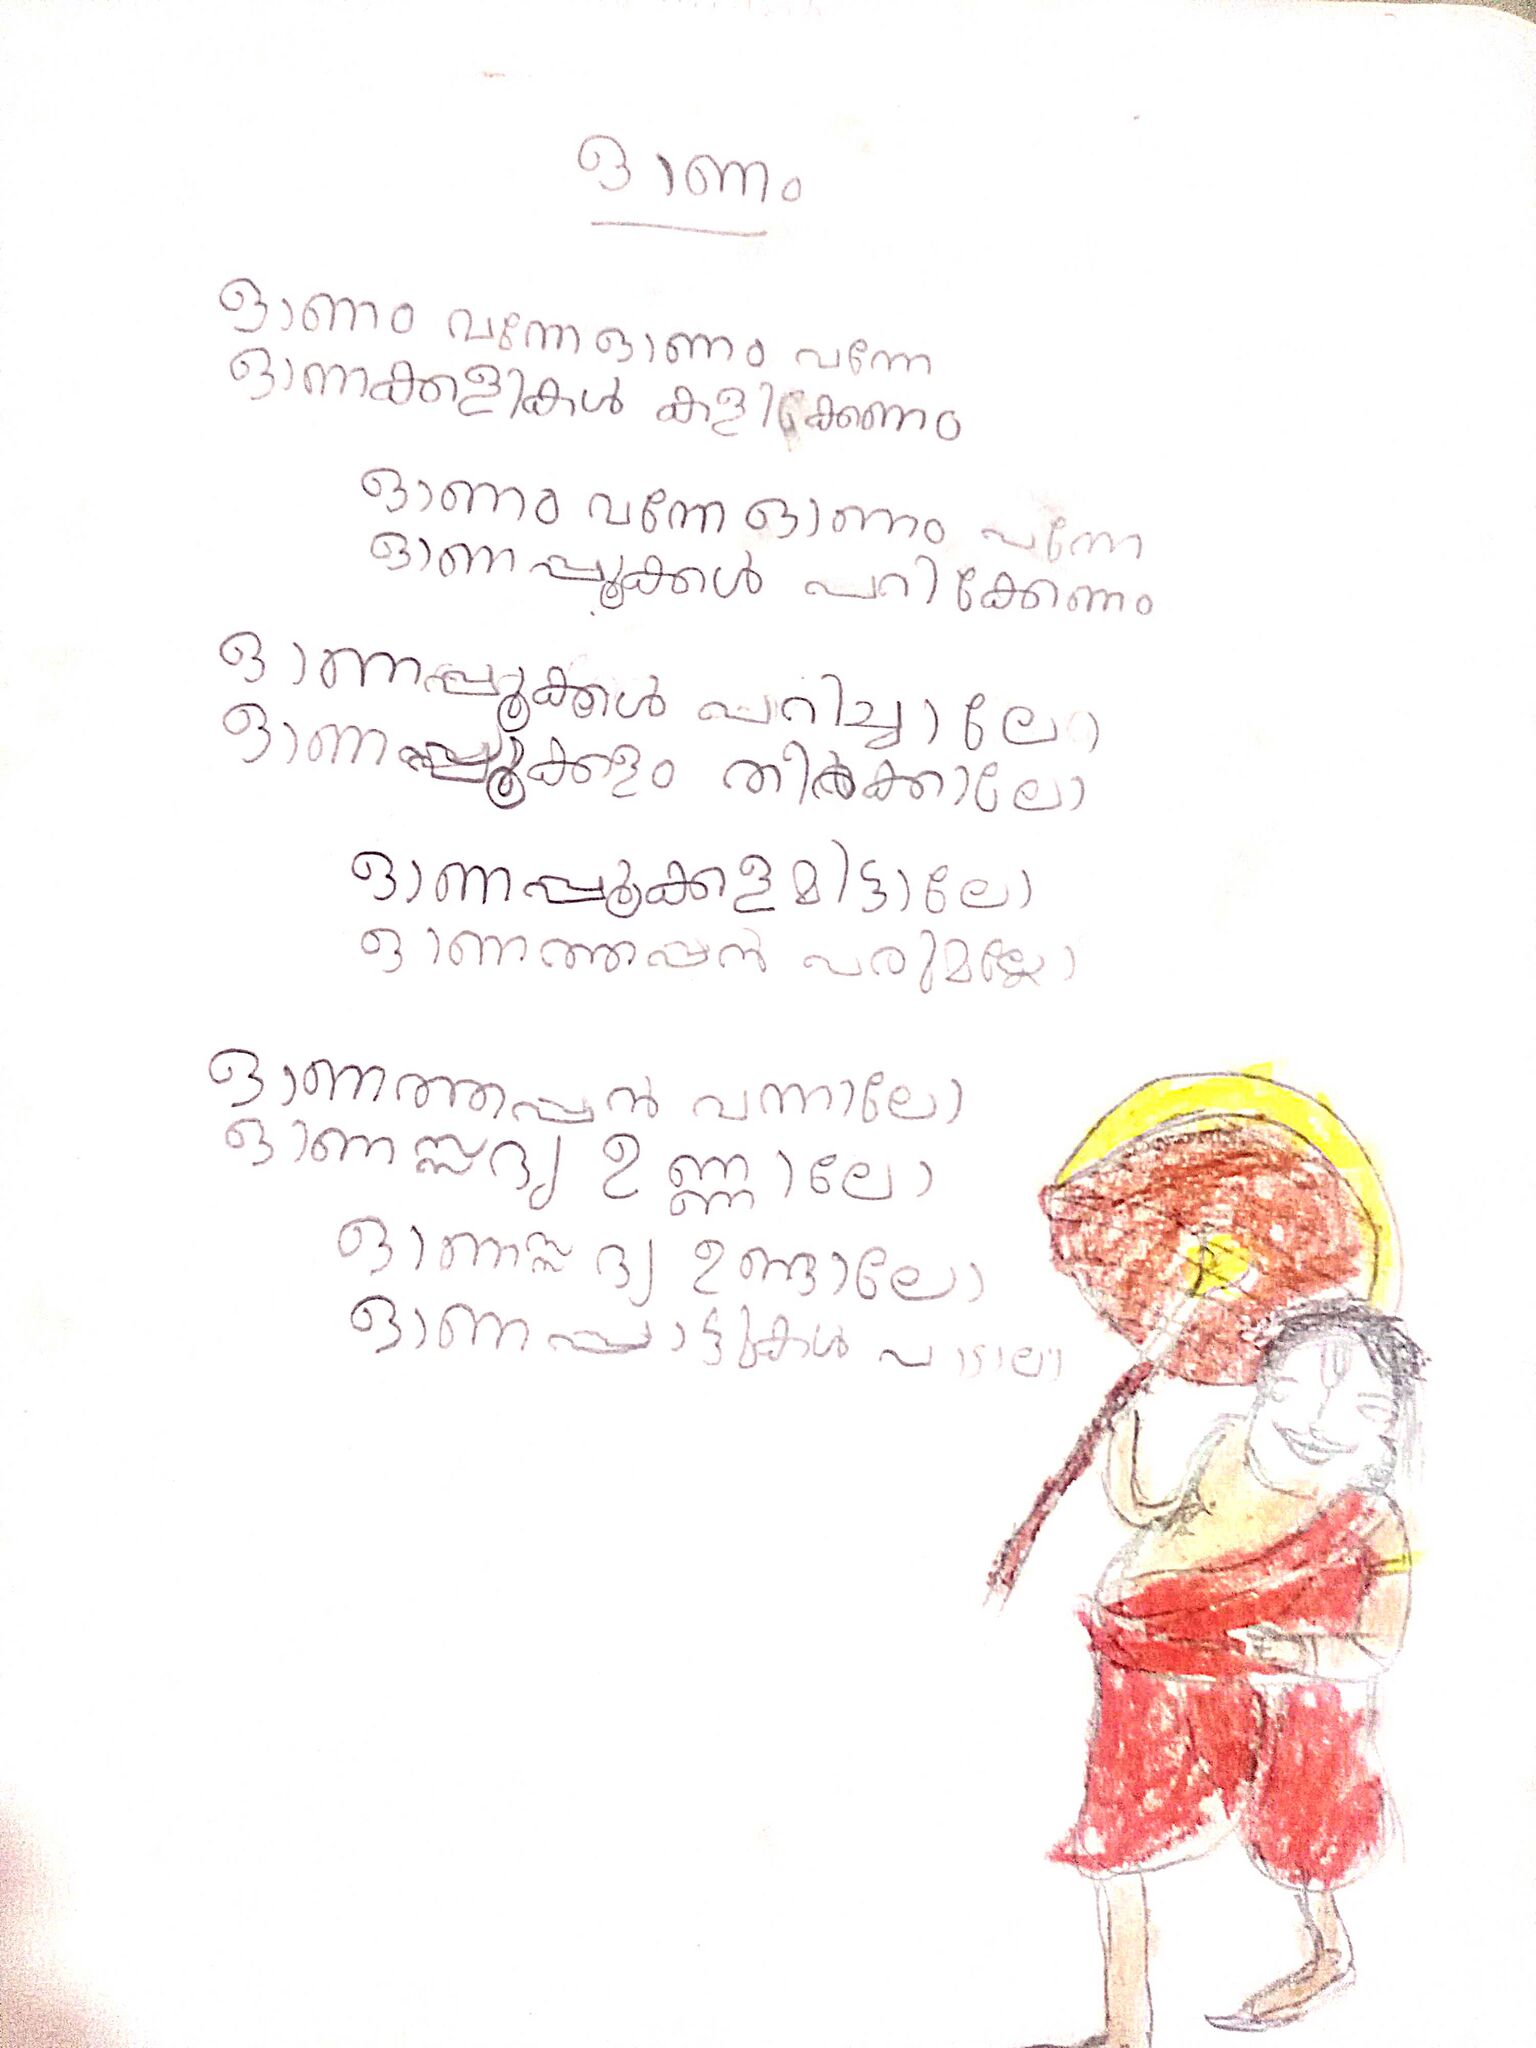 ഓണം
ഓണം വന്നേ ഓണം വന്നേ
ഓണക്കളികൾ കളിക്കേണം
ഓണം വന്നേ ഓണം വന്നേ
ഓണപ്പൂക്കൾ പറിക്കേണം
ഓണപ്പൂക്കൾ പറിച്ചാലോ
ഓണപ്പൂക്കളം തിർക്കാലോ
ഓണപ്പൂക്കളമിട്ടാലോ
ഓണത്തപ്പൻ വരുമല്ലോ
ഓണത്തപ്പൻ വന്നാലോ
ഓണസ്സദ്യ ഉണ്ണാലോ
ഓണസ്സദ്യ ഉണ്ടാലോ
ഓണപ്പാട്ടുകൾ പാടാലോ